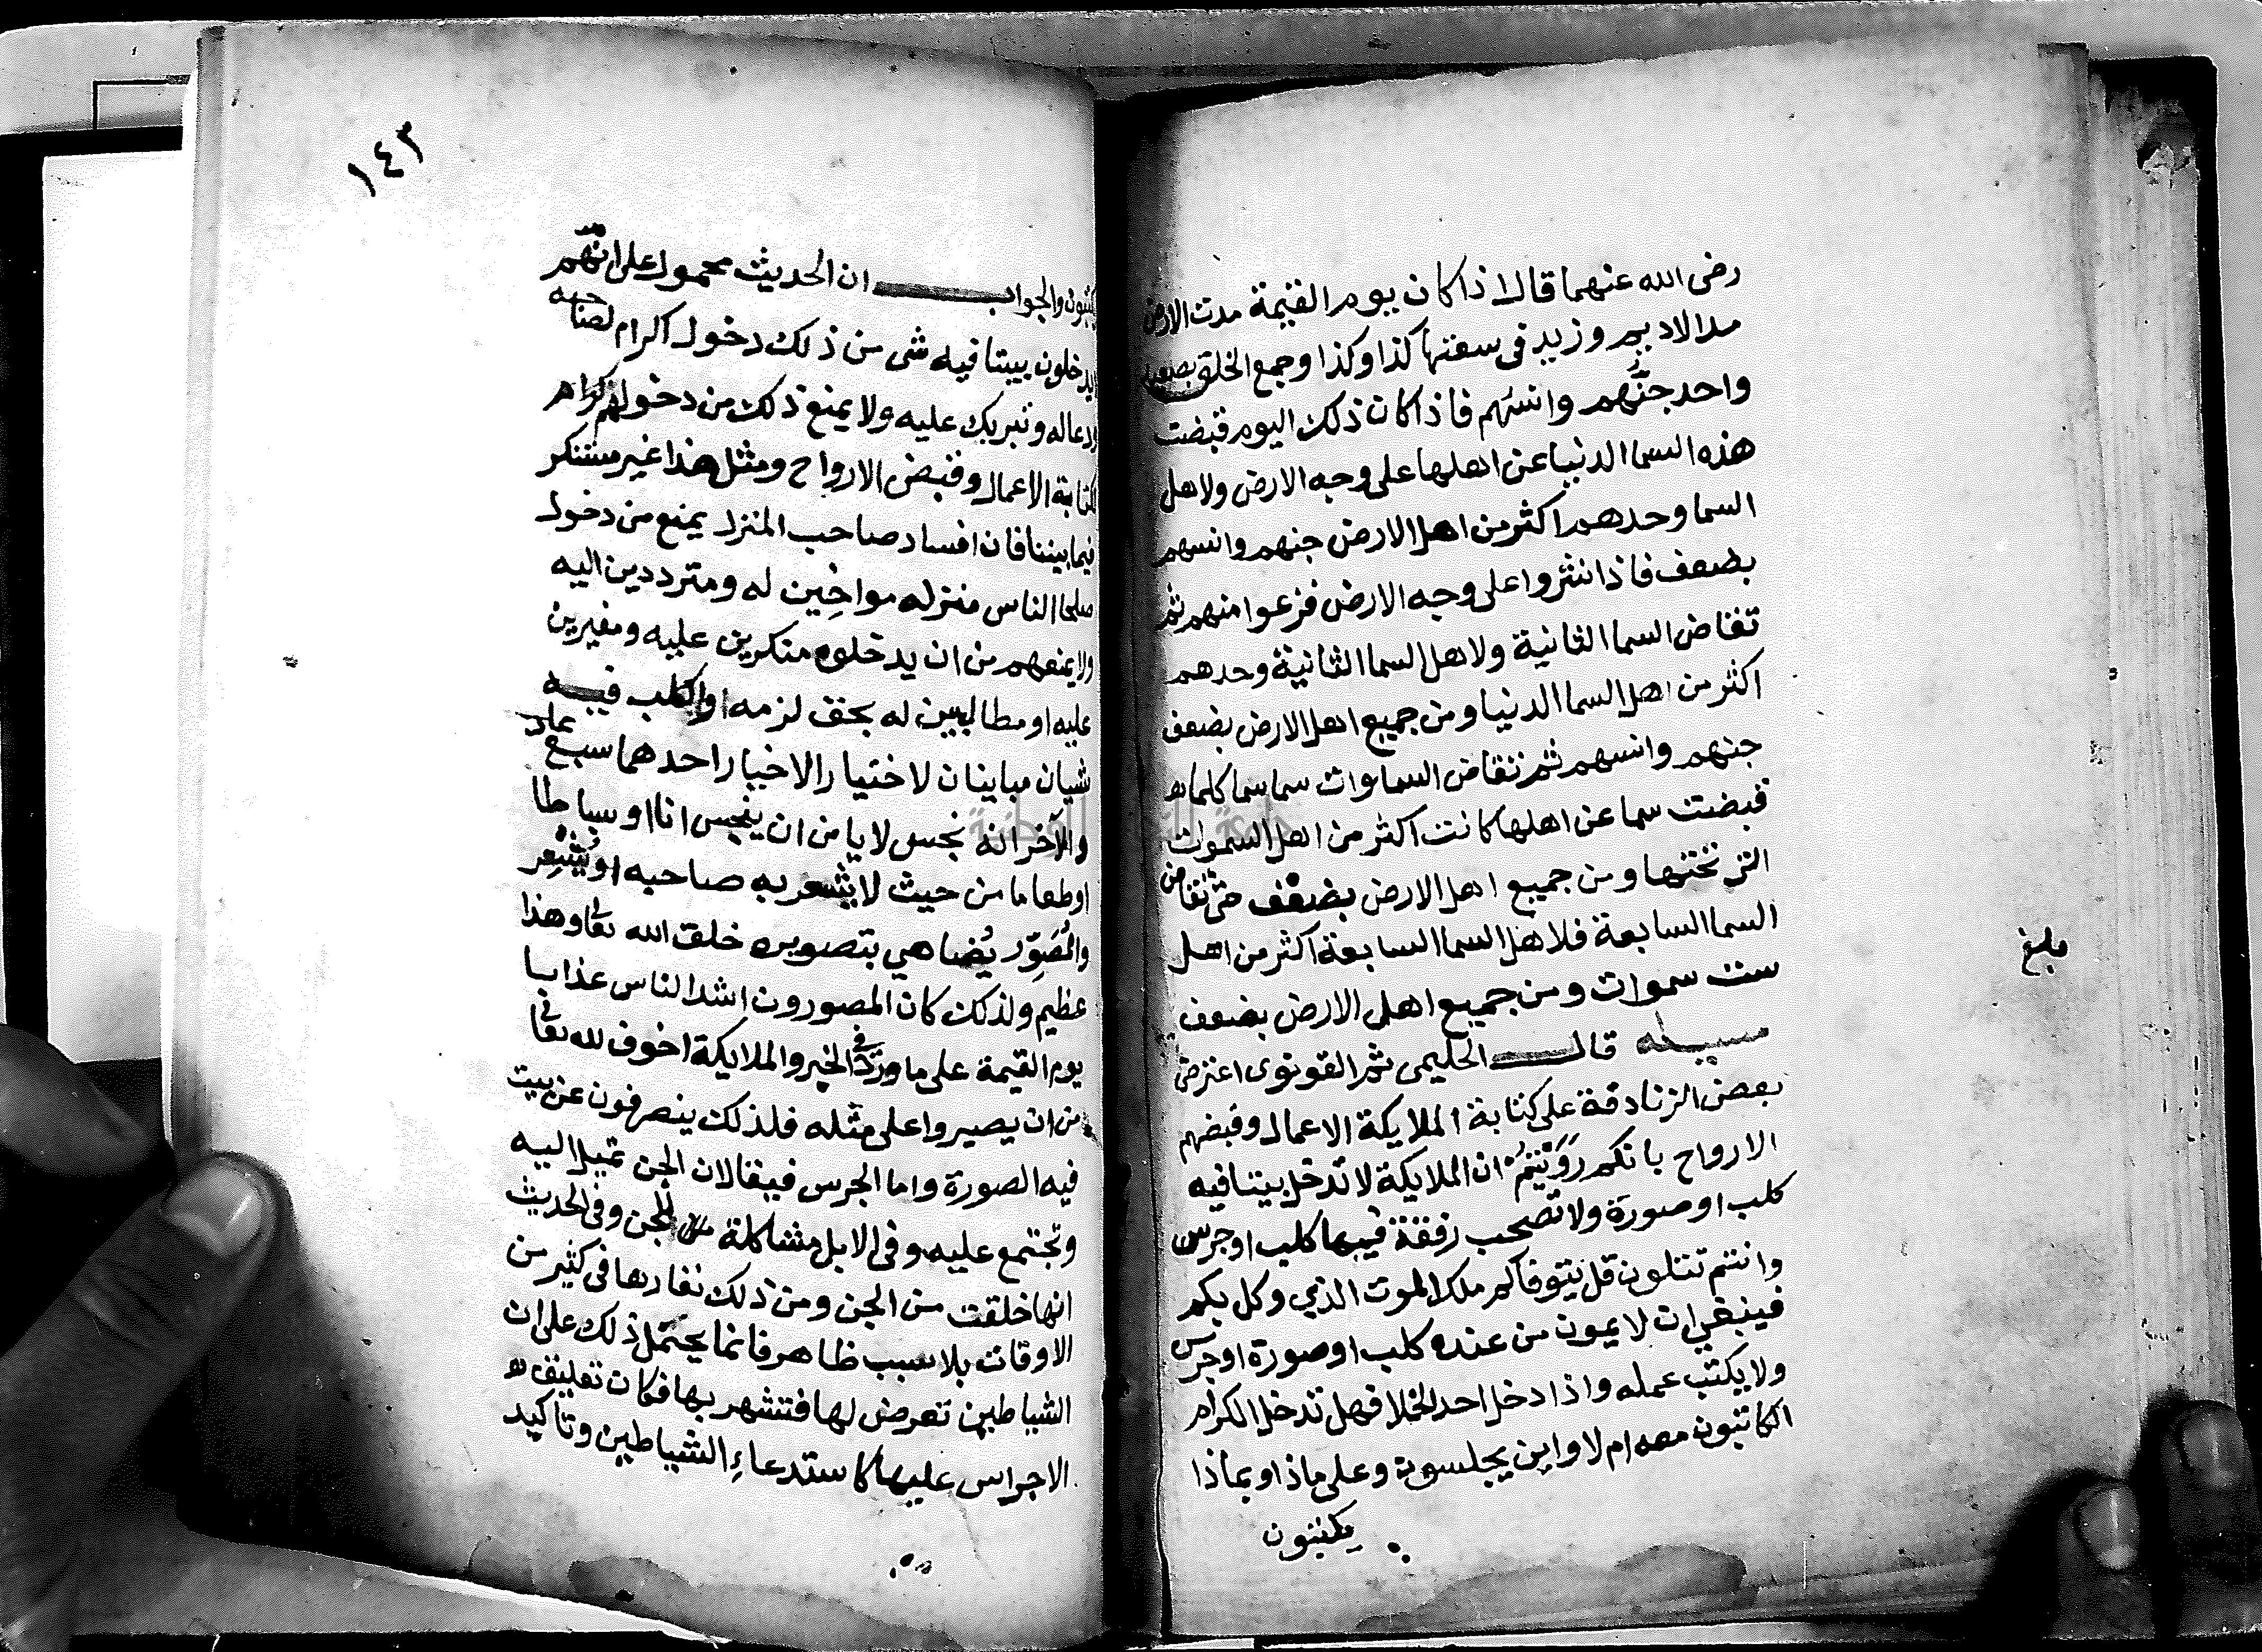 رضى الله عنهما قال اذا كان يوم القيمة مدت الارض
مد الاديم وزيد فى سعتها كذا وكذا وجمع الخلق بصعيد
واحد جنهم وانسهم فاذا كان ذلك اليوم قبضت
هذه السما الدنيا عن اهلها على وجه الارض ولاهل
السما وحدهم اكثر من اهل الارض جنهم وانسهم
بضعف فاذا نثروا على وجه الارض فزعوا منهم ثم
تقاض السما الثانية ولاهل السما الثانية وحدهم
اكثر من اهل السما الدنيا ومن جميع اهل الارض بضعف
جنهم وانسهم ثم تقاض السماوات سما سما كلما
قبضت سما عن اهلها كانت اكثر من اهل السموات
التى تحتها ومن جميع اهل الارض بضعف حتى تقاض
السما السابعة فلاهل السما السابعة اكثر من اهل
ست سموات ومن جميع اهل الارض بضعف
مسيله قال الحليمى ثم القونوى اعترض
بعض الزنادقة على كتابة الملايكة الاعمال وقبضهم
الارواح بانكم رَوَيْتُمْ ان الملايكة لا تدخل بيتا فيه
كلب او صورة ولا تصحب رفقة فيها كلب او جرس
وانتم تتلون قل يتوفاكم ملك الموت الذي وكل بكم
فينبغي ان لا يموت من عنده كلب او صورة او جرس
ولا يكتب عمله واذا دخل احد الخلا فهل تدخل الكرام
الكاتبون معه ام لا واين يجلسون وعلى ماذا وبماذا
يكتبون
مبلغ
١٤٣
يكتبون والجواب ان الحديث محمول على انهم
لا يدخلون بيتا فيه شى من ذلك دخول اكرام لصاحبه
ودعا له وتبريك عليه ولا يمنع ذلك من دخولهم
لكتابة الاعمال وقبض الارواح ومثل هذا غير مستنكر
فيما بيننا فان افساد صاحب المنزل يمنع من دخول
صلحا الناس منزله مواخين له ومترددين اليه
ولا يمنعهم من ان يدخلوه منكرين عليه ومغيرين
عليه او مطالبين له بحق لزمه والكلب فيه
شيان مباينان لاختيار الاخيار احدهما سبع عاد
والآخر انه نجس لا يامن ان ينجس انا او بساطا
او طعاما من حيث لا يشعر به صاحبه او يُشْعِر
والمُصَوِّر يُضاهي بتصويره خلق الله تعا وهذا
عظيم ولذلك كان المصورون اشد الناس عذابا
يوم القيمة على ما ورد فى الخبر والملايكة اخوف لله تعا
من ان يصيروا على مثله فلذلك ينصرفون عن بيت
فيه الصورة واما الجرس فيقال ان الجن تميل اليه
وتجتمع عليه وفى الابل مشاكلة من الجن وفى الحديث
انها خلقت من الجن ومن ذلك نفارها فى كثير من
الاوقات بلا سبب ظاهر فانما يحتمل ذلك على ان
الشياطين تعرض لها فتشهر بها فكان تعليق
الاجراس عليها كاستدعاءِ الشياطين وتاكيد